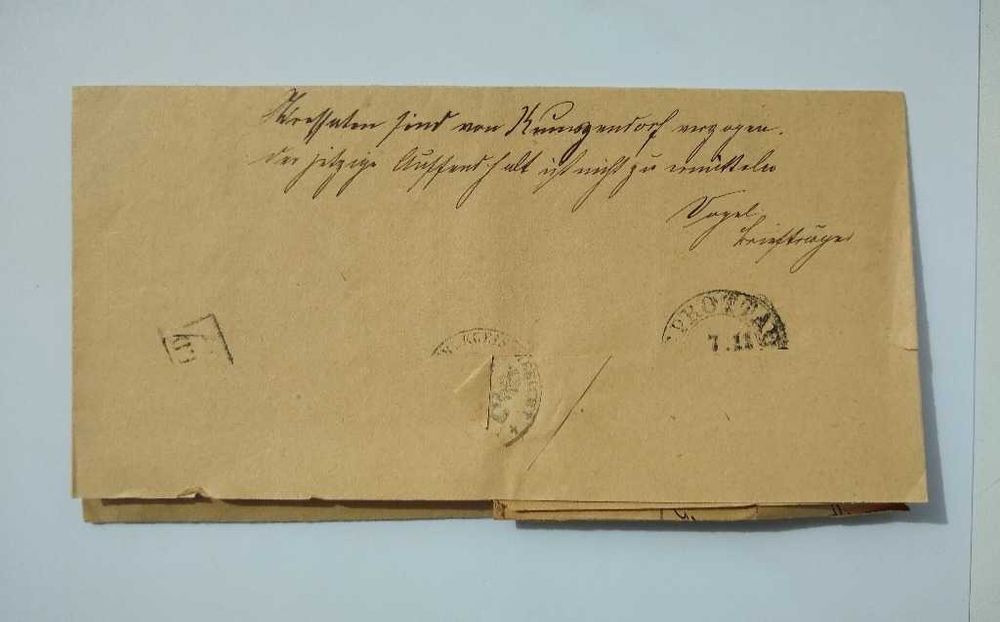 Adressaten sind von Kunzendorf verzogen.
Der jetzige Aufenthalt ist nicht zu ermitteln
Vogel
Briefträger
SPROTTAU
7.11